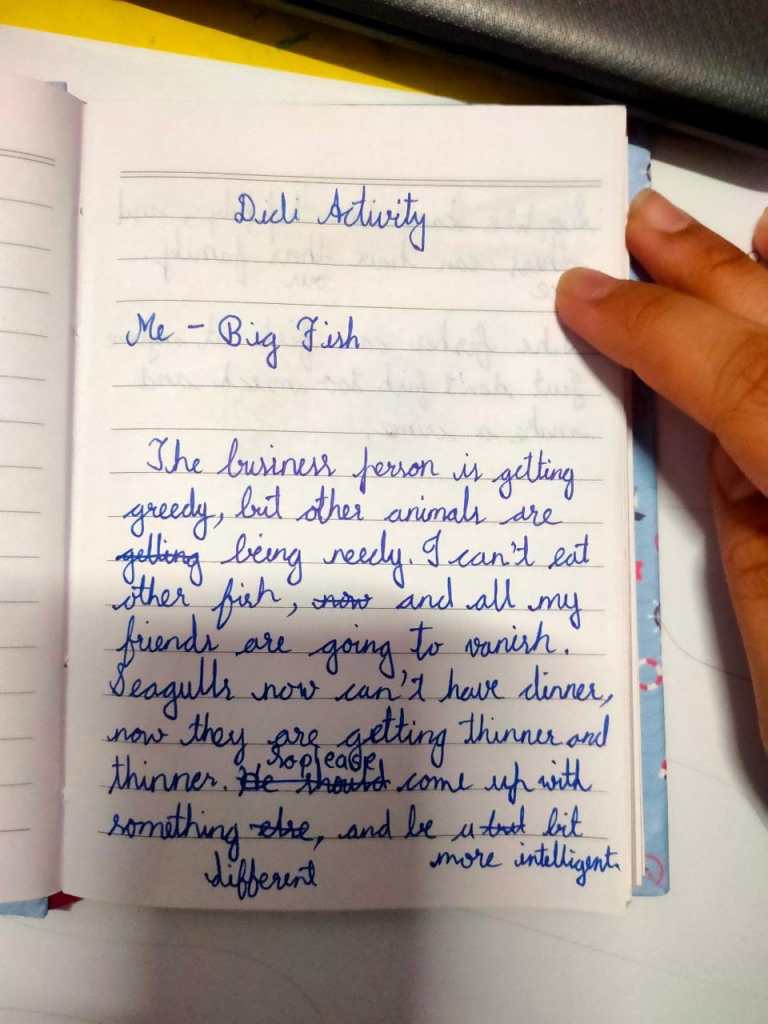 Didi Activity
Me - Big Fish
The business person is getting
greedy, but other animals are
getting being needy. I can't eat
other fish, now and all my
friends are going to vanish.
Seagulls now can't have dinner,
now they are getting thinner and
so please
thinner. He should come up with
something else, and be a but bit
different more intelligent.